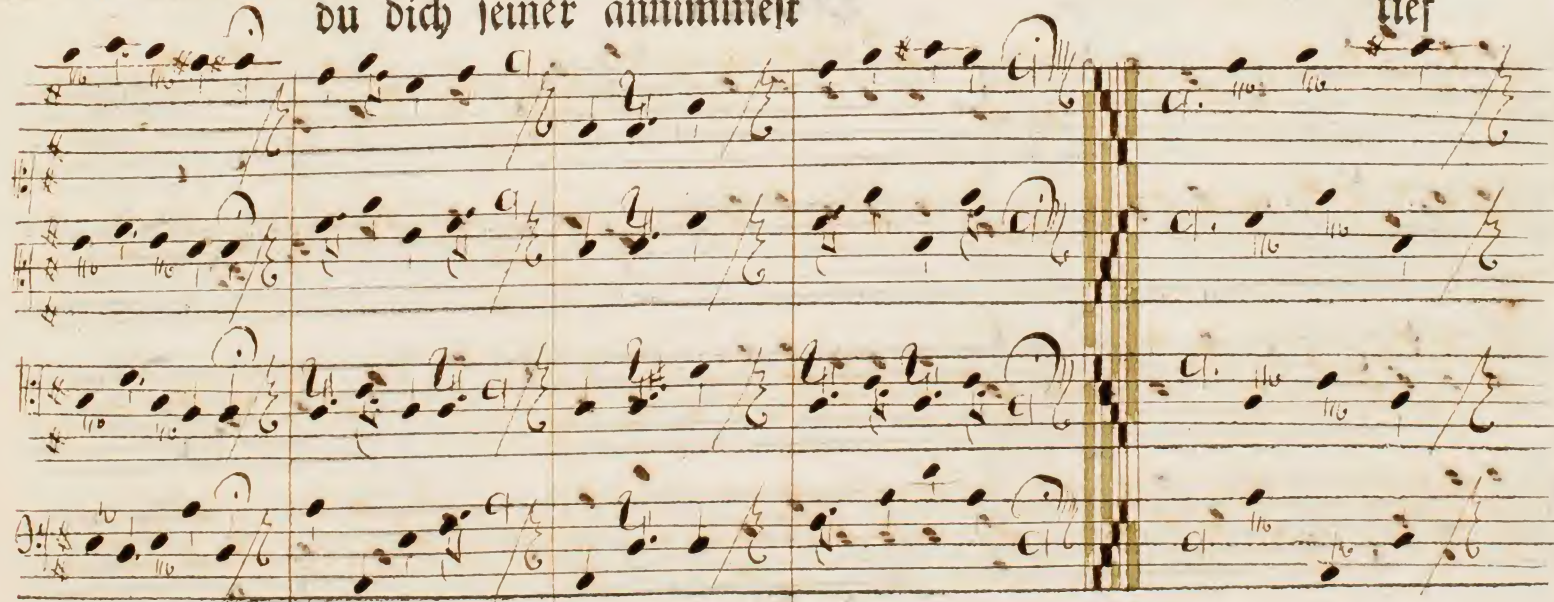 du dich seiner annimmest tief